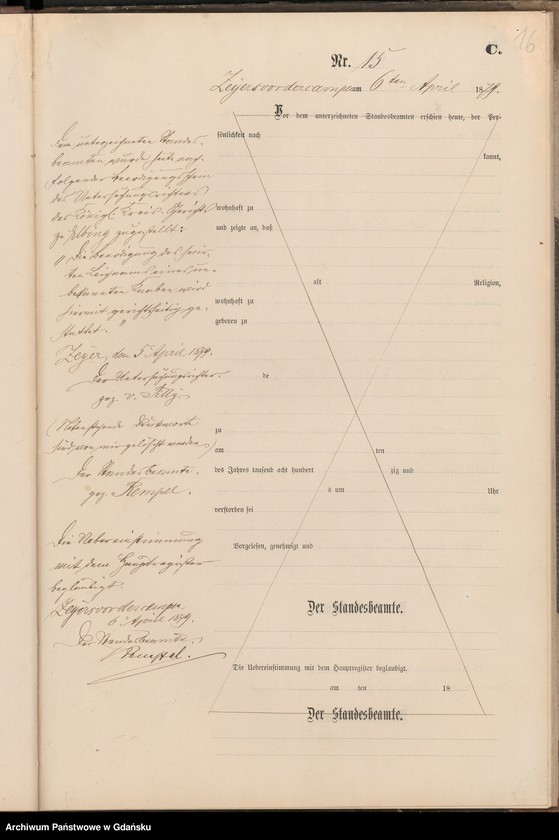 16
C.
Nr. 15
Zeyersvordercampen am 6ten April 1879.
Vor dem unterzeichneten Standesbeamten erschien heute, der Per-
sönlichkeit nach
kannt,
wohnhaft zu
und zeigte an, daß
alt Religion,
wohnhaft zu
geboren zu
de
zu
am ten
des Jahres tausend acht hundert zig und
s um Uhr
verstorben sei
Vorgelesen, genehmigt und
Der Standesbeamte.
Die Uebereinstimmung mit dem Hauptregister beglaubigt.
am ten 18
Der Standesbeamte.
Dem unterzeichneten Standes-
beamten wurde heute nach-
folgender Beerdigungsschein
des Untersuchungsrichters
des Königl. Kreis-Gerichts
zu Elbing zugestellt:
"Die Beerdigung des
Leichnams eines un-
bekannten Knaben wird
hiermit gerichtseitig ge-
stattet."
Zeyer, den 5 April 1879.
Der Untersuchungsrichter.
gez. v.
(Nebenstehende Druckworte
sind von mir gelöscht worden)
Der Standesbeamte.
gez. Rempel.
Die Uebereinstimmung
mit dem Hauptregister
beglaubigt.
Zeyersvordercampen
6 April 1879.
Der Standesbeamte.
Rempel.
Archiwum Państwowe w Gdańsku